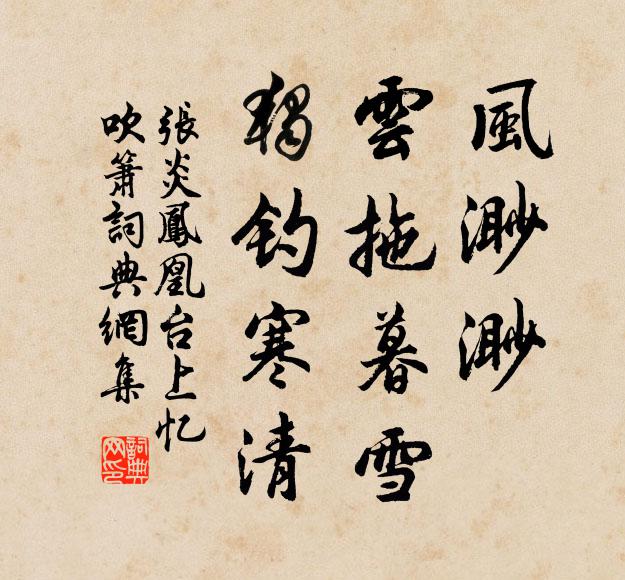 風渺渺
雲拖暮雪
獨釣寒清
張炎鳳凰台上忆
吹簫詞典網集
詞典
网印